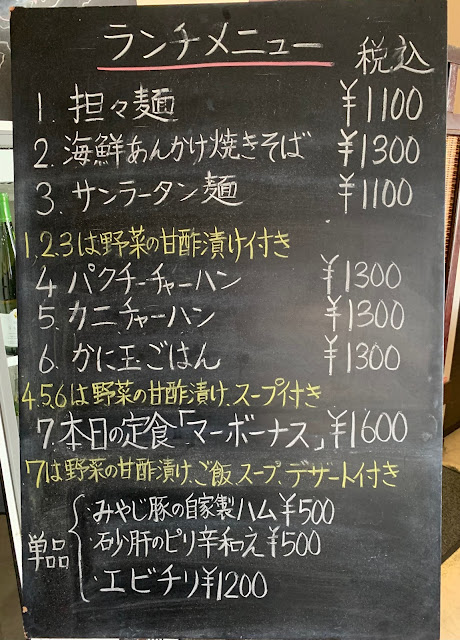 ランチメニュー 税込
1. 担々麺 ¥1100
2. 海鮮あんかけ焼きそば ¥1300
3. サンラータン麺 ¥1100
1.2.3は野菜の甘酢漬け付き
4 パクチーチャーハン ¥1300
5. カニチャーハン ¥1300
6. かに玉ごはん ¥1300
4.5.6は野菜の甘酢漬け、スープ付き
7. 本日の定食「マーボーナス」 ¥1600
7は野菜の甘酢漬け、ご飯 スープ、デザート付き
単品
・みやじ豚の自家製ハム ¥500
・砂肝のピリ辛和え ¥500
・エビチリ ¥1200